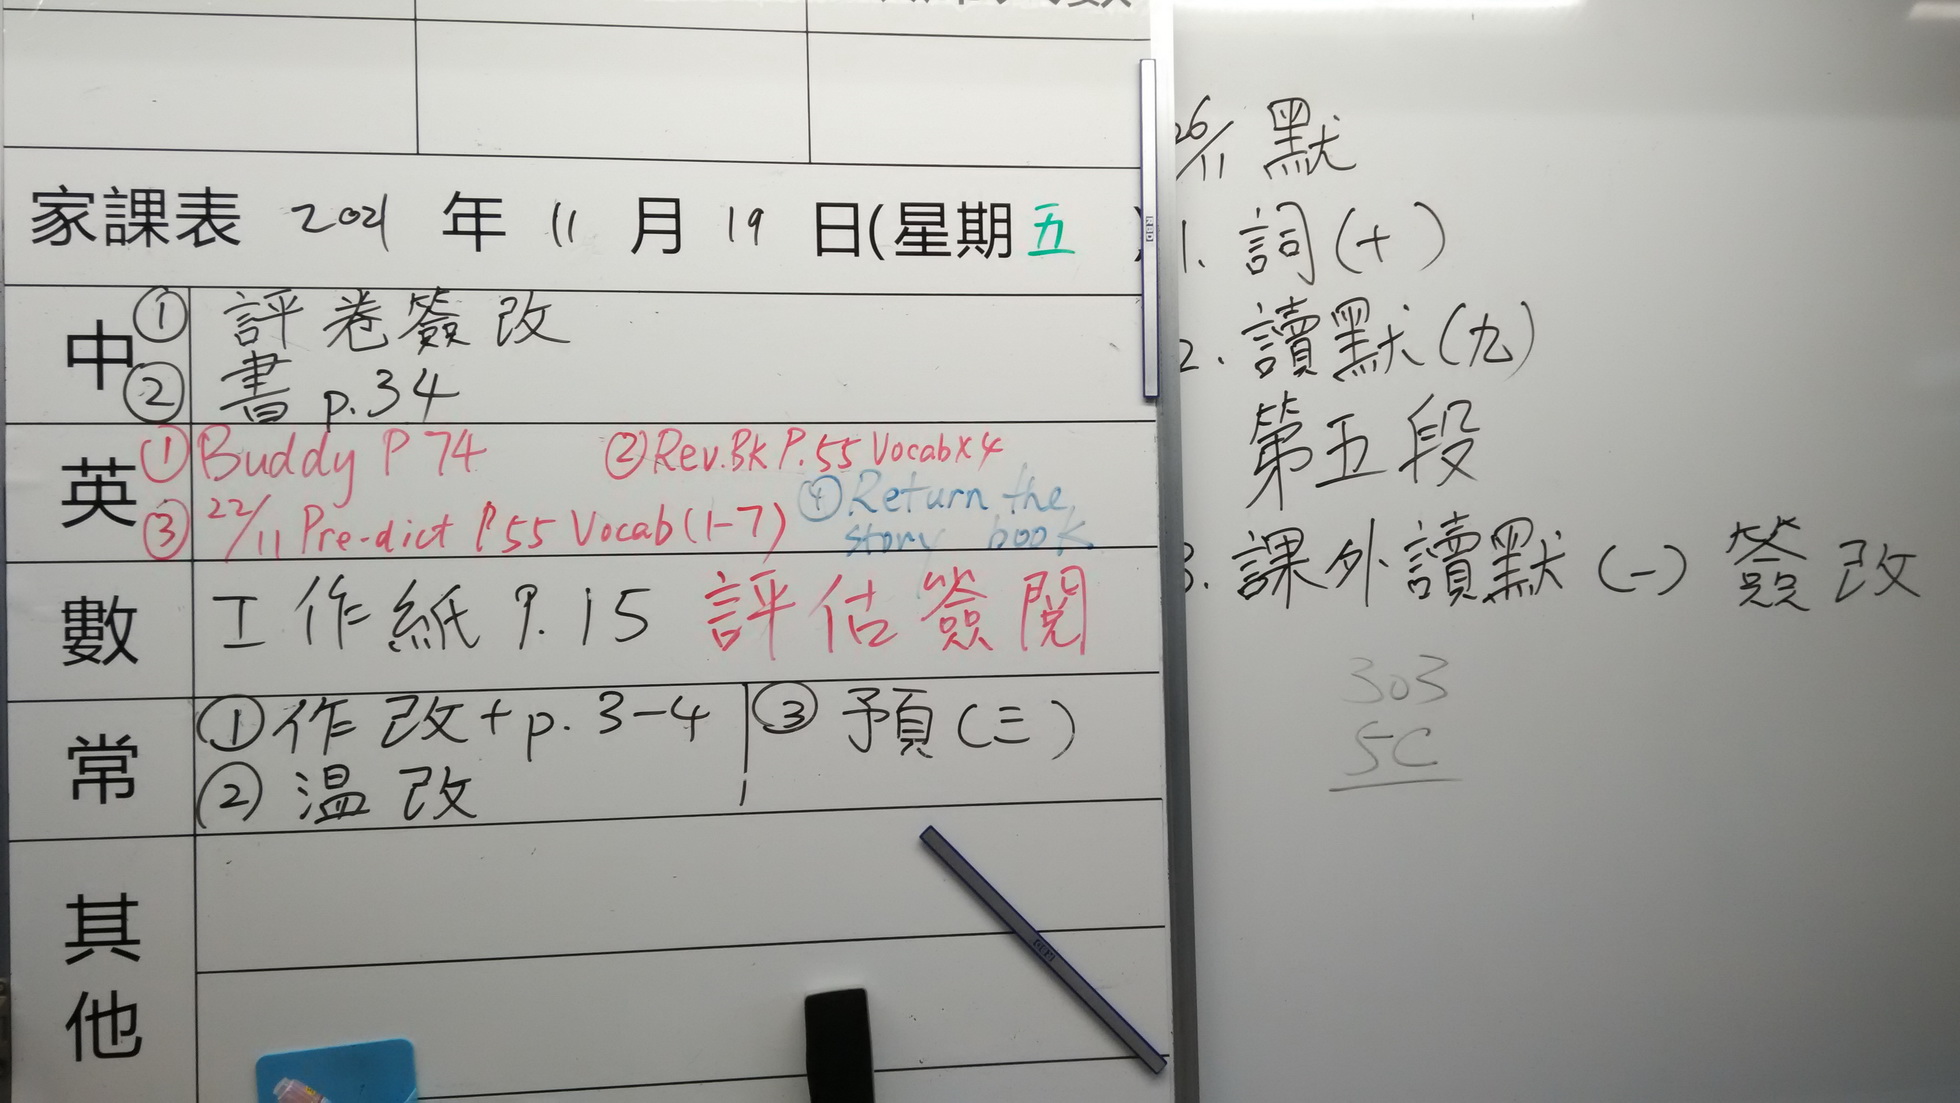 家課表 2021 年 11 月 19 日(星期五)
中 ① 評卷簽改
② 書 p.34
英 ① Buddy P 74 ② Rev.BK P.55 Vocab x 4
③ 22/11 Pre-dict P55 Vocab (1-7) ④ Return the story book
數 工作紙 P.15 評估簽閱
常 ① 作改 + p. 3-4 ③ 預(三)
② 溫改
其他
26/11 默
1. 詞(十)
2. 讀默(九)
第五段
3. 課外讀默(一) 簽改
303
5C